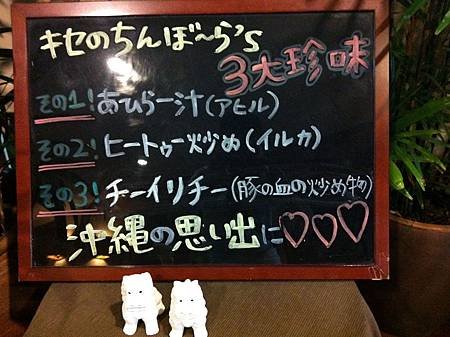 キセのちんぼ～ら's
3大珍味
その1! あひらー汁(アヒル)
その2! ヒートゥー炒め(イルカ)
その3! チーイリチー(豚の血の炒め物)
沖縄の思い出に♡♡♡